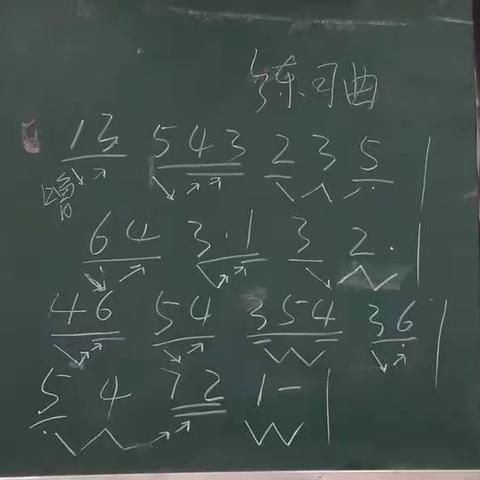 练习曲
13 543 2 3 5 |
唱
64 3·1 3 2· |
46 54 354 36 |
5 4 72 1- |